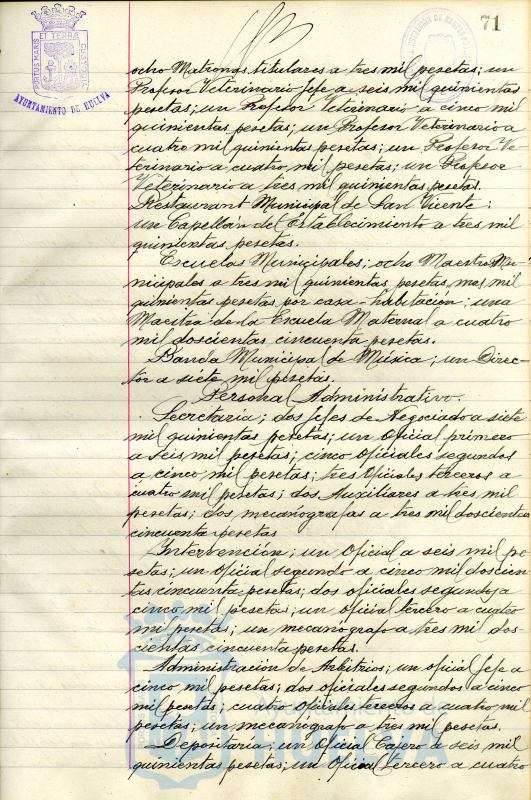 71
PORTUS MARIS ET TERRÆ CUSTODIA
AYUNTAMIENTO DE HUELVA
ocho Matronas titulares a tres mil pesetas; un
Profesor Veterinario Jefe a seis mil quinientas
pesetas; un Profesor Veterinario a cinco mil
quinientas pesetas; un Profesor Veterinario a
cuatro mil quinientas pesetas; un Profesor Ve-
terinario a cuatro mil pesetas; un Profesor
Veterinario a tres mil quinientas pesetas.
Restaurant Municipal de San Vicente:
un Capellán del Establecimiento a tres mil
quinientas pesetas.
Escuelas Municipales; ocho Maestros Mu-
nicipales a tres mil quinientas pesetas, mas mil
quinientas pesetas por casa-habitación; una
Maestra de la Escuela Maternal a cuatro
mil doscientas cincuenta pesetas.
Banda Municipal de Música; un Direc-
tor a siete mil pesetas.
Personal Administrativo.
Secretaria; dos Jefes de Negociado a siete
mil quinientas pesetas; un Oficial primero
a seis mil pesetas; cinco Oficiales segundos
a cinco mil pesetas; tres Oficiales terceros a
cuatro mil pesetas; dos Auxiliares a tres mil
pesetas; dos mecanógrafas a tres mil doscientas
cincuenta pesetas
Intervención; un Oficial a seis mil pe-
setas; un oficial segundo a cinco mil doscien-
tas cincuenta pesetas; dos oficiales segundos a
cinco mil pesetas; un oficial tercero a cuatro
mil pesetas; un mecanógrafo a tres mil dos-
cientas cincuenta pesetas.
Administración de Arbitrios; un oficial Jefe a
cinco mil pesetas; dos oficiales segundos a cinco
mil pesetas; cuatro oficiales terceros a cuatro mil
pesetas; un mecanógrafo a tres mil pesetas.
Depositaria; un Oficial Cajero a seis mil
quinientas pesetas; un Oficial tercero a cuatro
HUELVA